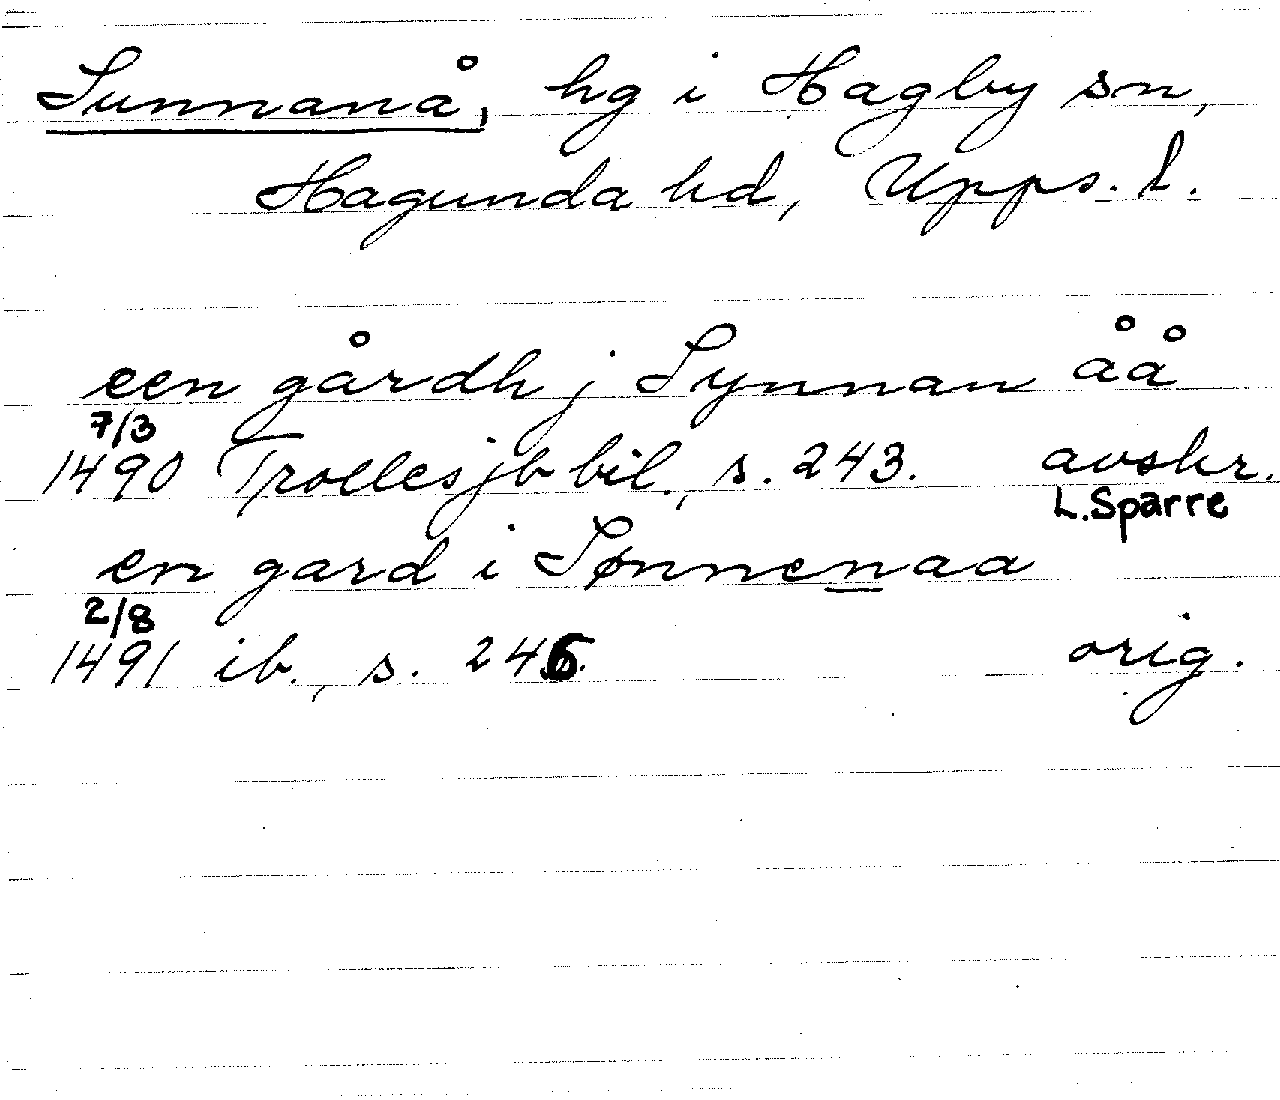 Sunnanå, hg i Hagby sn,
Hagunda hd, Upps. l.
een gårdh j Synnan åå
7/3
1490 Trollesjb bil., s. 243. avskr.
L. Sparre
en gard i Sønnenaa
2/8
1491 ib., s. 246. orig.